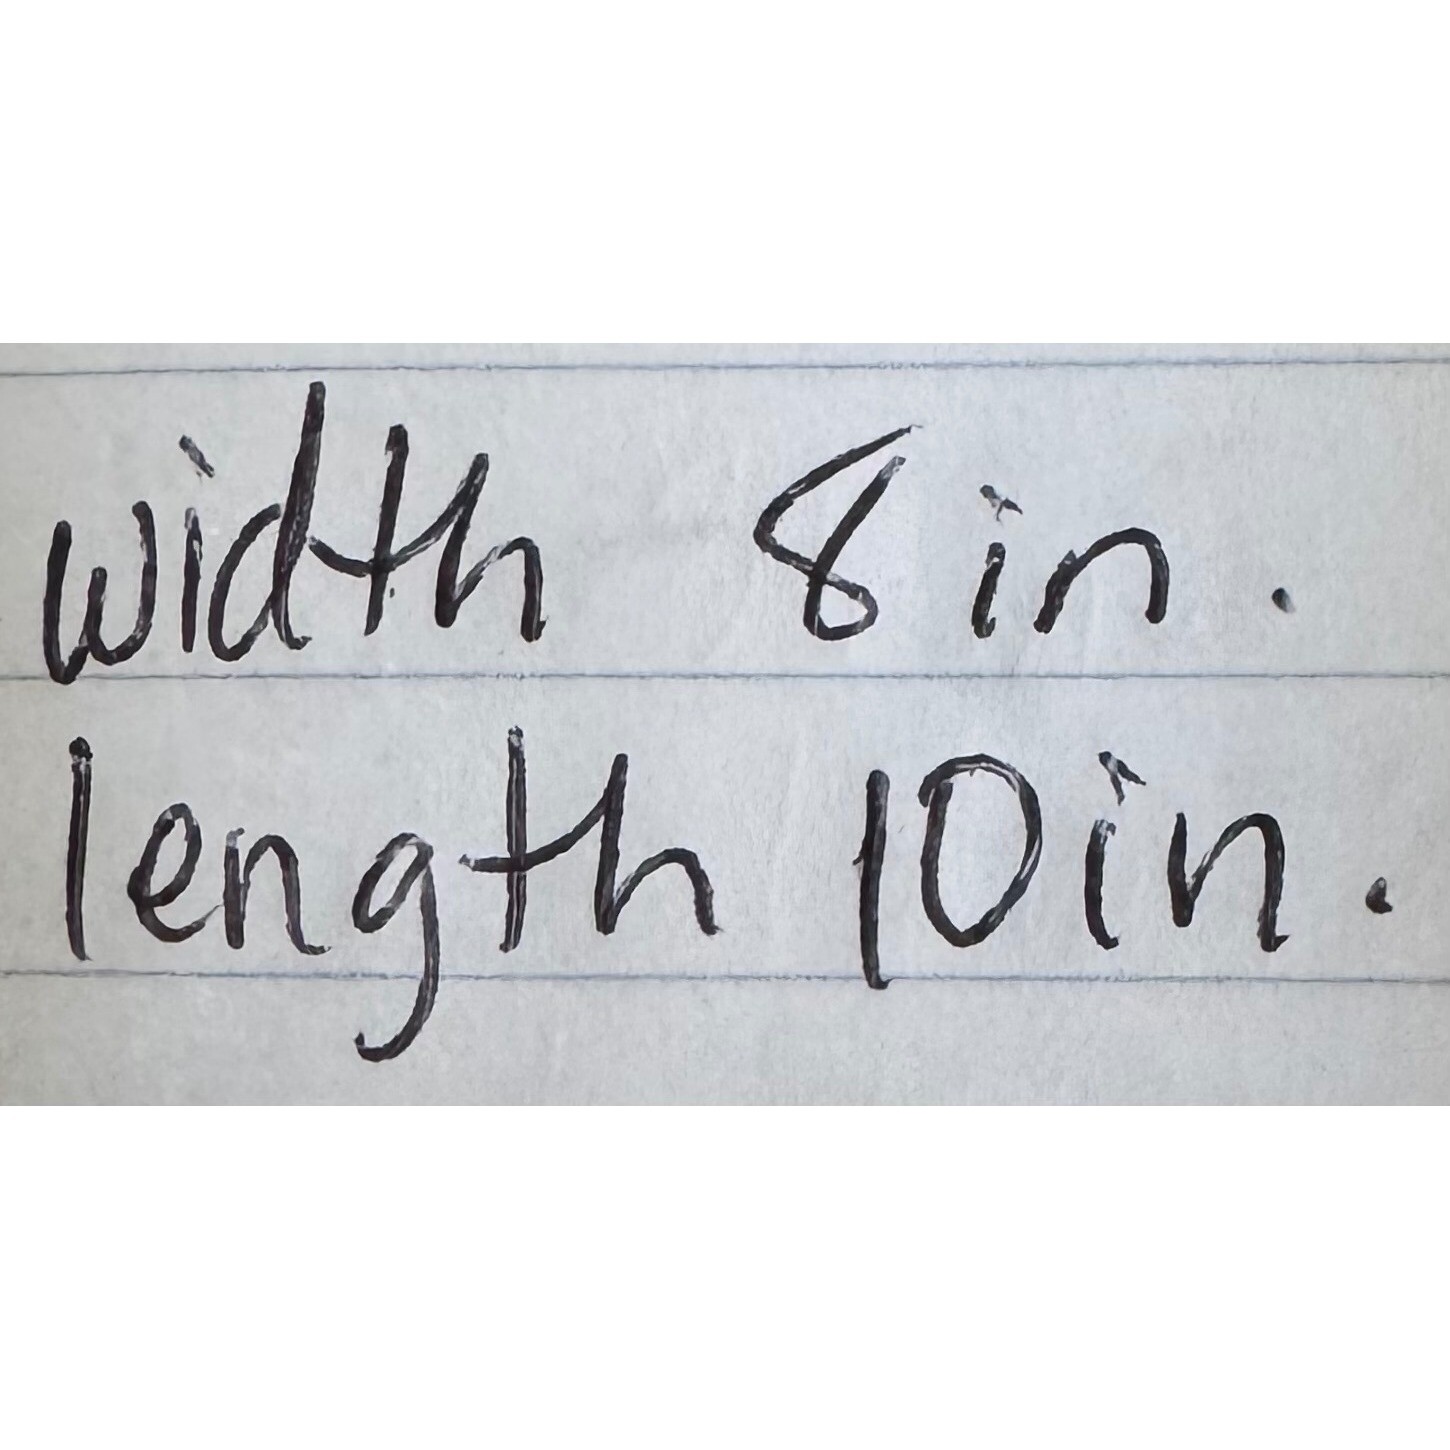 width 8 in.
length 10 in.